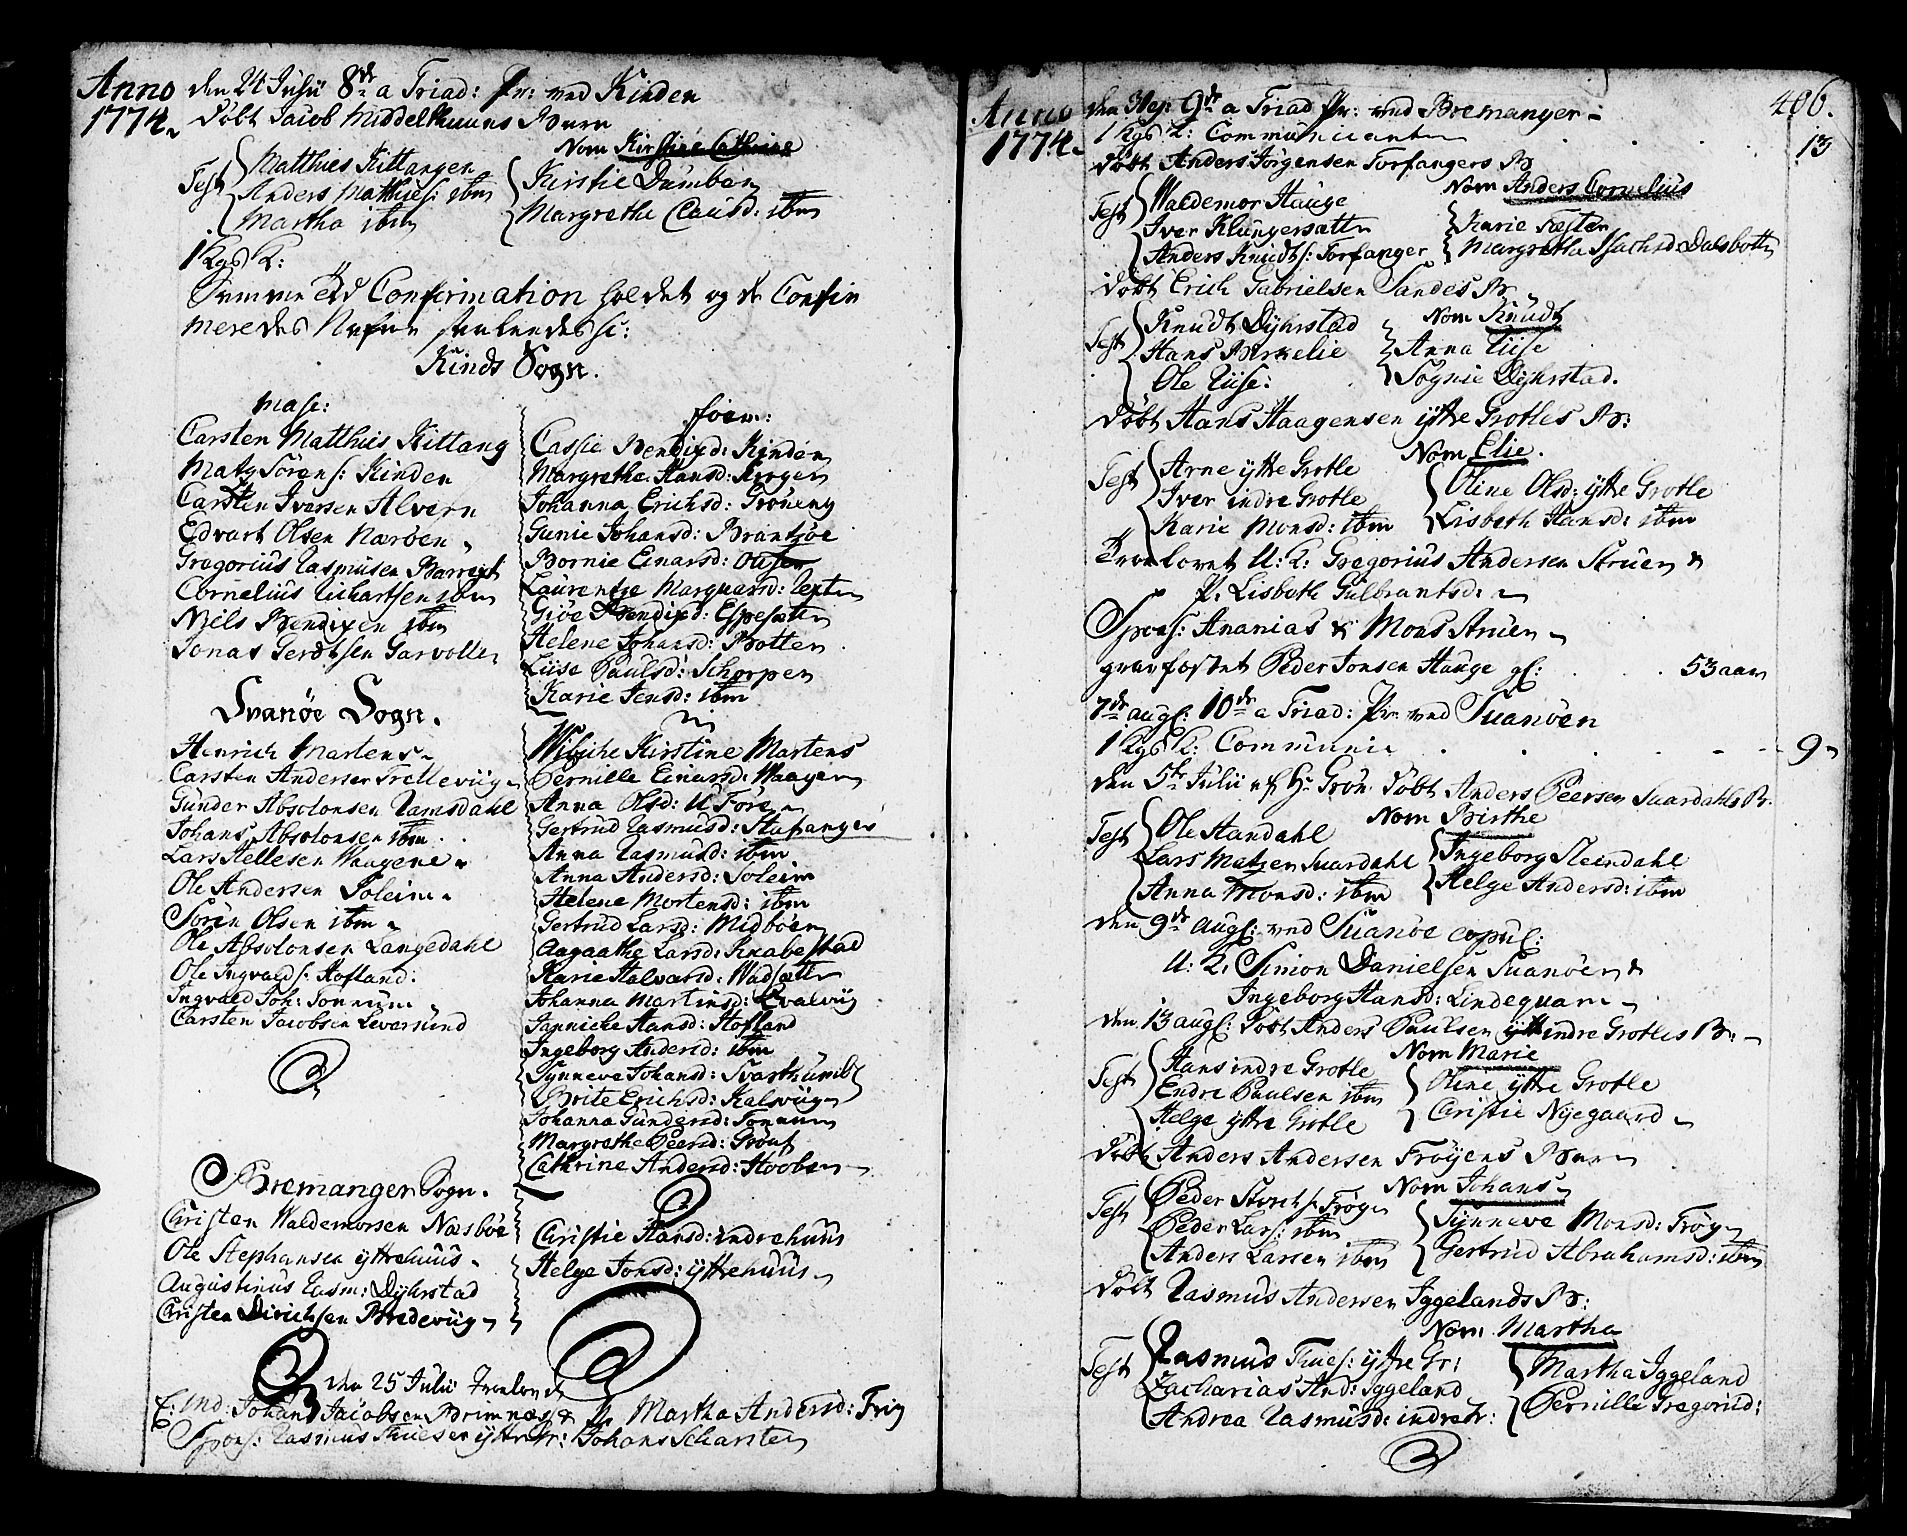 Anno den 24 Julii 8de a Triad: Pr: ved Kinden
1774. Døbt Jacob Middelhuuns Barn
Nom Kirstine Cathrine
Test Matthies Kittangen
Anders Matthies: ibm
Martha ibm
Kirstie Damben
Margrethe Clausd: ibm
1 Kgs K:
Samme Tid Confirmation holdet og de Confir
meredes Nafne saaledes
Kinds Sogn.
Masc:
Carsten Matthies Kittang
Matz Sørens: Kinden
Carsten Iversen Alvern
Edvart Olsen Nærøen
Gregorius Rasmusen Barrext
Cornelius Richartsen ibm
Niels Bendixen ibm
Jonas Gerdtsen Garvolle
foem:
Cassie Bendixd: Kinden
Margrethe Hansd: Borgen
Johanna Erichsd: Grøneng
Gunie Johansd: Brantzøe
Bornie Einarsd: Ousen
Laurentze Marquarsd: Rexten
Giøe Bendixd: Espesæter
Helene Johansd: Botten
Liise Paulsd: Schorpen
Karie Jensd: ibm
Svanøe Sogn.
Henrich Martens
Carsten Andersen Trelleviig
Gunder Absolonsen Ramsdahl
Johans Absolonsen ibm
Lars Hellesen Waagene
Ole Andersen Soleim
Søren Olsen ibm
Ole Absolonsen Langedahl
Ole Ingvalds: Hofland
Ingvald Joh: Sonnum
Carsten Jacobsen Leversund
Wibiche Kirstine Martens
Pernille Einarsd: Waagen
Anna Olsd: U Føre
Gertrud Rasmusd: Stafanger
Anna Rasmusd: ibm
Anna Andersd: Soleim
Helene Mortensd: ibm
Gertrud Larsd: Midbøen
Aagaathe Larsd: Knabestad
Karie Halvarsd: Wadsæter
Johanna Martinsd: Qvalviig
Jannicke Hansd: Hofland
Ingeborg Andersd: ibm
Synneve Johansd: Svarthumle
Brite Erichsd: Kalsviig
Johanna Gundersd: Sonnum
Margrethe Peersd: Grønf
Cathrine Andersd: Hooben
Bremanger Sogn.
Christen Waldemorsen Næsbøe
Ole Stephansen yttrehuus
Augustinus Rasm: Dyhrstad
Christen Dirichsen Bredeviig
Christie Hansd: indrehuus
Helge Jonsd: yttrehuus
den 25 Julii Trolovede
E: Md: Johans Jacobsen Brimnæs & P: Martha Andersd: Friis
Spons: Rasmus Thuesen yttre Gr: Johans Scharsten
406.
Anno den 31 Jul: 9de a Triad Pr: ved Bremanger
1774 1 Kgs K: Communicanter . . . 13
Døbt Anders Jørgensen Torfangers B.
Nom Anders Cornelius
Test Waldemor Hauge
Iver Klungersætter
Anders Knudts: Torfanger
Karie Fæsten
Margrethe Isachsd: Dalsbotten
Døbt Erich Gabrielsen Sandes B.
Nom Knudt
Test Knudt Dyhrstad
Hans Birkelie
Ole Riise:
Anna Riise
Sognie Dyhrstad.
Døbt Hans Haagensen yttre Grotles B:
Nom Elie.
Test Arne yttre Grotle
Iver indre Grotle
Karie Monsd: ibm
Oline Olsd: yttre Grotle
Lisbeth Hansd: ibm
Troelovet U: K: Gregorius Andersen Struen &
P. Lisbeth Gulbrantsd:
Spons: Ananias & Mons Struen
gravfæstet Peder Jonsen Hauge gl: . . 53 aar
7de aug: 10de a Triad: Pr: ved Svanøen
1 Kgs K: Communic . . . 9
den 5te Julii af Hr Grøn: Døbt Anders Peersen Svardahls B.
Nom Birthe
Test Ole Standahl
Lars Matzen Svardahl
Anna Monsd: ibm
Ingeborg Steendahl
Helge Andersd: ibm
den 9de aug: ved Svanøe copul:
U: K: Simon Danielsen Svanøen &
Ingeborg Hansd: Lindequam
den 13 aug: Døbt Anders Paulsen indre Grotles B:
Nom Marie
Test Hans indre Grotle
Endre Paulsen ibm
Helge yttre Grotle
Oline yttre Grotle
Christie Nyegaard
Døbt Anders Andersen Frøyens Barn
Nom Johans
Test Peder Storchs: Frøyen
Peder Lars: ibm
Anders Larsen ibm
Synneve Monsd: Frøyen
Gertrud Abrahamsd: ibm
Døbt Rasmus Andersen Iggelands B:
Nom Martha
Test Rasmus Thues: yttre Gr:
Zacharias And: Iggeland
Andrea Rasmusd: indre Gr:
Martha Iggeland
Pernille Gregoriid: